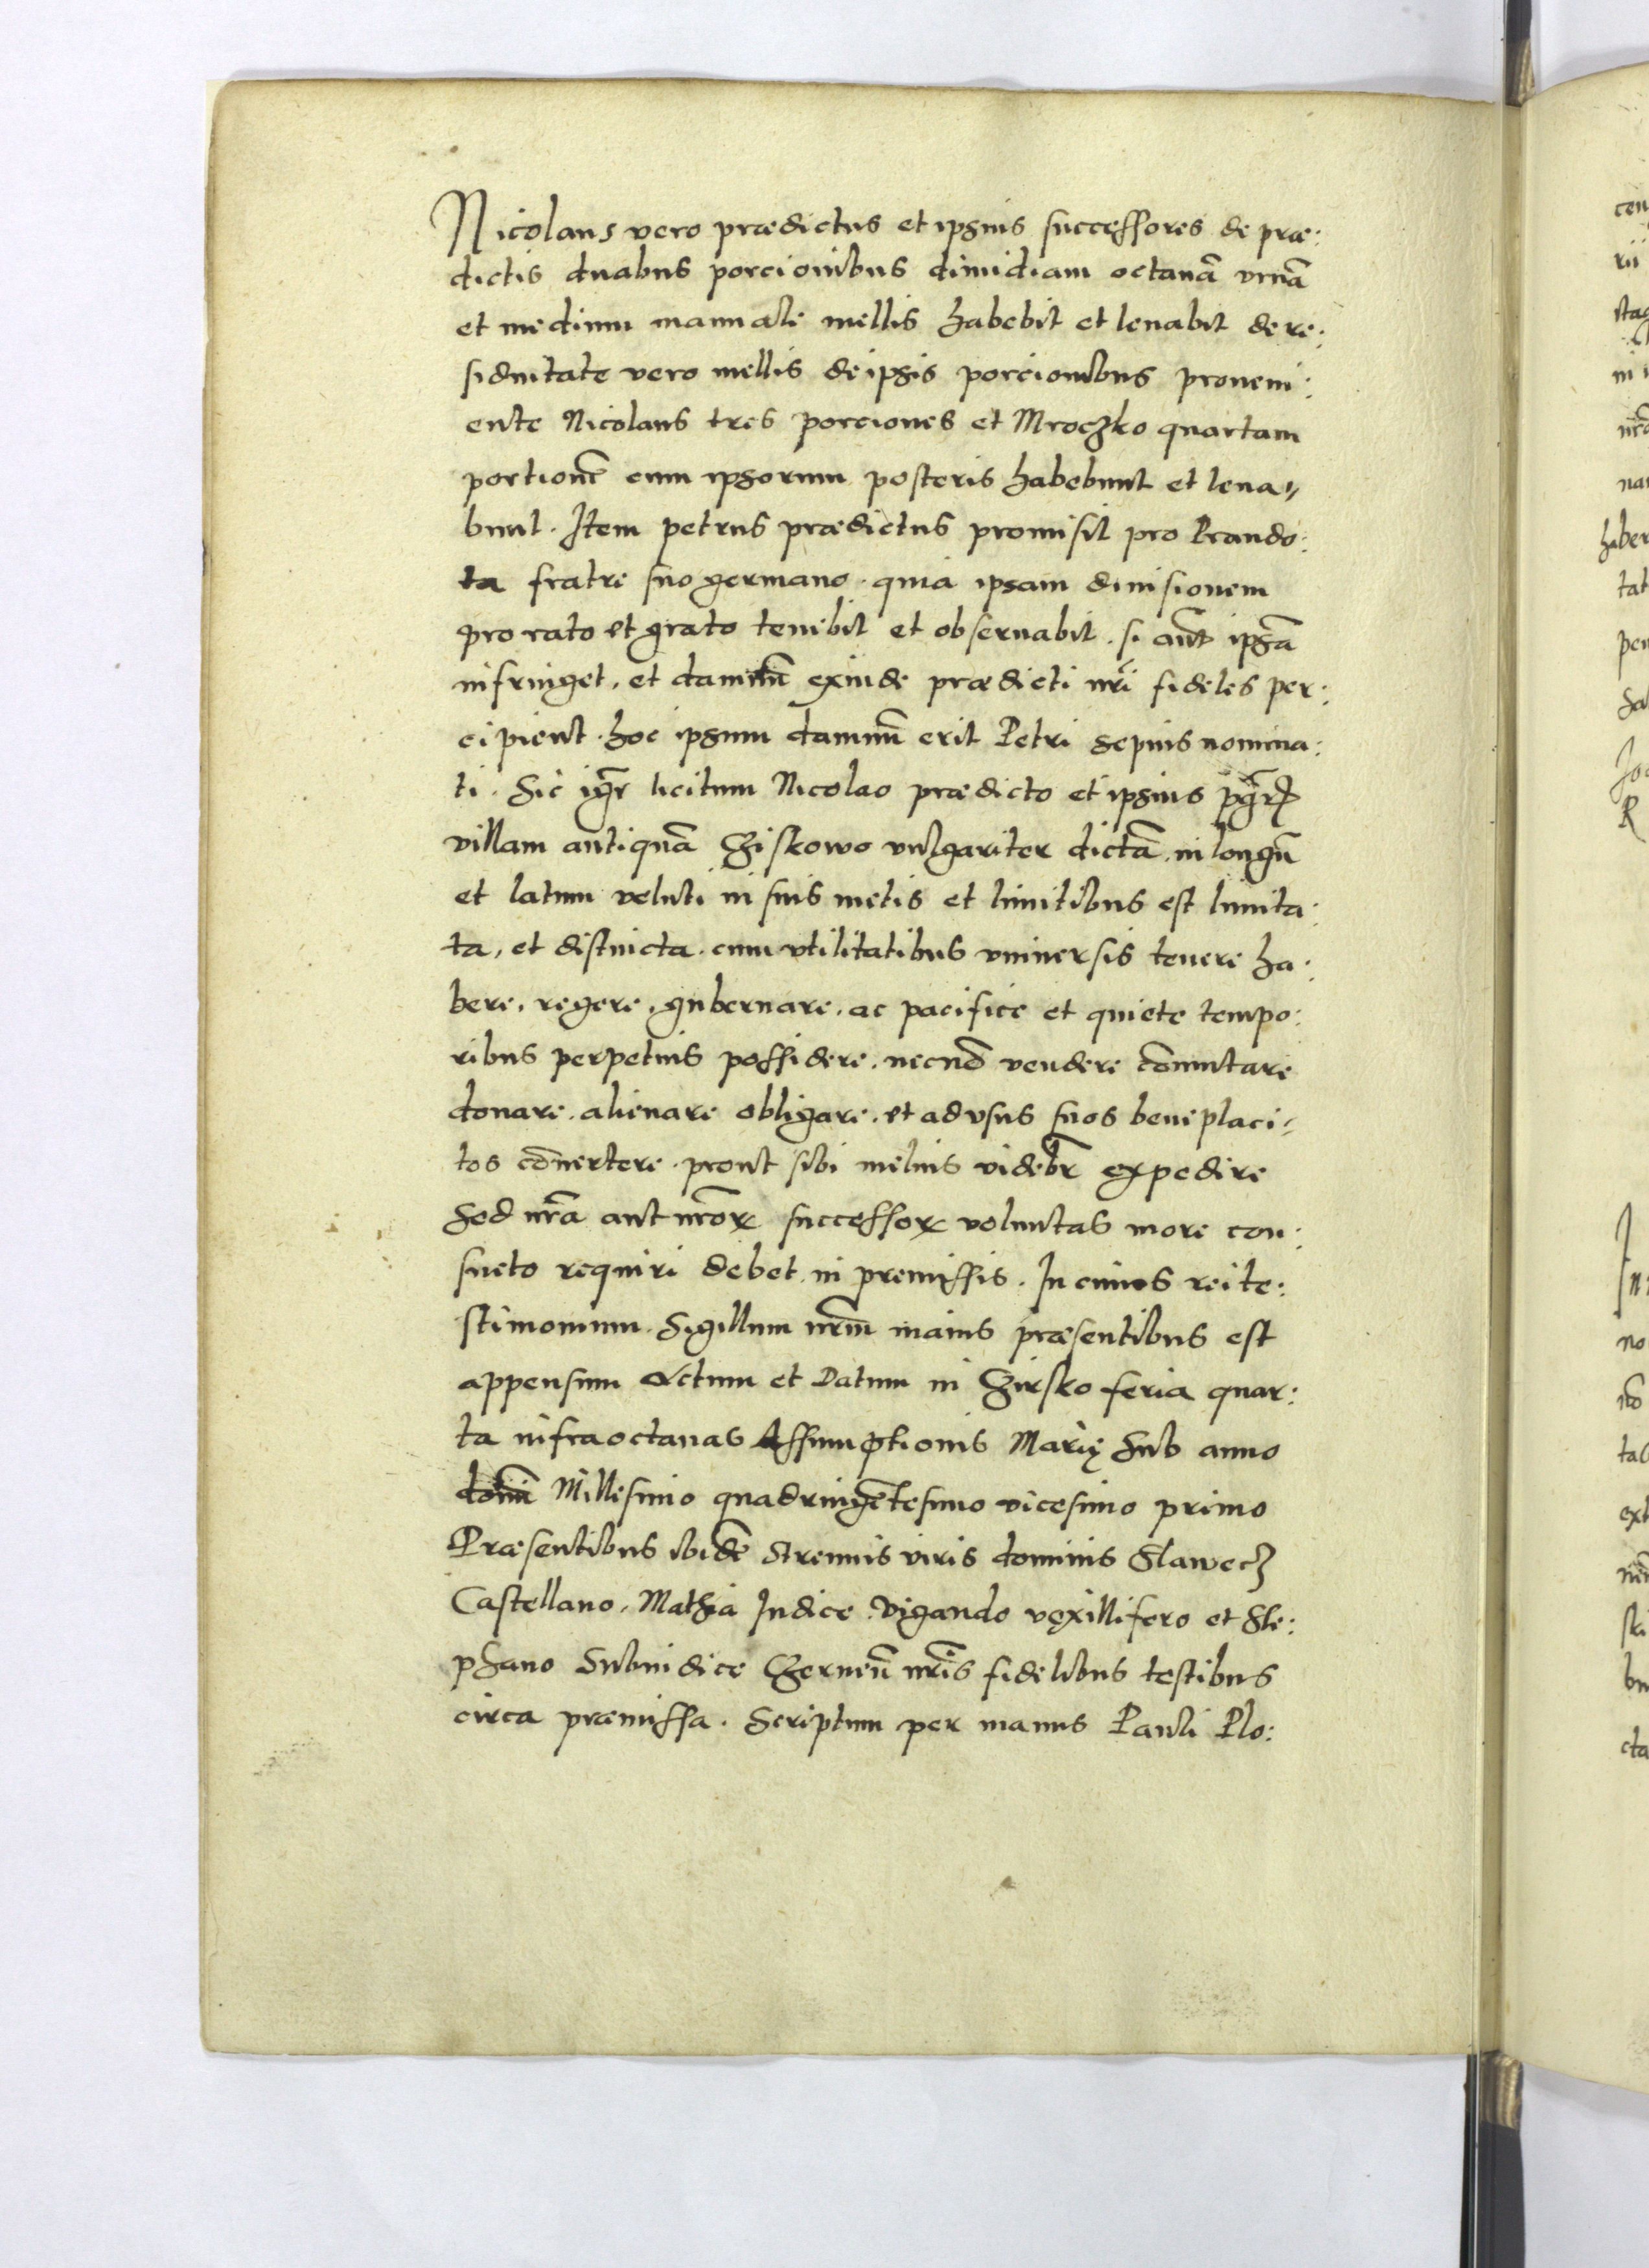 Nicolaus vero prædictus et ipsius successores de præ:
dictis duabus porcionibus dimidiam octauā vrnā
et medium manuale mellis habebit et leuabit de re:
siduitate vero mellis de ipsis porcionibus proueni:
ente Nicolaus tres porciones et Mroczko quartam
portionē cum ipsorum posteris habebunt et leua„
bunt. Item petrus prædictus promisit pro Prando:
ta fratre suo germano. quia ipsam diuisionem
pro rato et grato tenebit et obseruabit. si aūt ipsā
infringet, et damnū exinde prædicti nr̄i fideles per:
cipient. hoc ipsum damnū erit Petri sepius nomina:
ti. Sic igr̄ licitum Nicolao prædicto et ipsius
villam antiquā Cziskowo vulgariter dictā, in longū
et latum veluti in suis metis et limitibus est limita:
ta, et distincta. cum vtilitatibus vniuersis tenere ha:
bere, regere, gubernare, ac pacifice et quiete tempo:
ribus perpetuis possidere. necnō vendere cōmutare
donare. alienare obligare. et ad vsus suos beneplaci„
tos cōuertere. prout sibi melius videbr̄ expedire
Sed nr̄a aut nr̄orꝝ successorꝝ voluntas more con:
sueto requiri debet in premissis. In cuius rei te:
stimonium. Sigillum nr̄m maius præsentibus est
appensum Actum et Datum in Czirsko feria quar:
ta infra octauas Assumptionis Marię Sub anno
domī Millesimo quadringētesimo vicesimo primo
Præsentibus ibidē strennis viris dominis Slawecz
Castellano, Mathia Iudice. Vigando vęxillifero et Ste:
phano Subiudice Czerneñ nr̄is fidelibus testibus
circa præmissa. Scriptum per manus Pauli Plo: